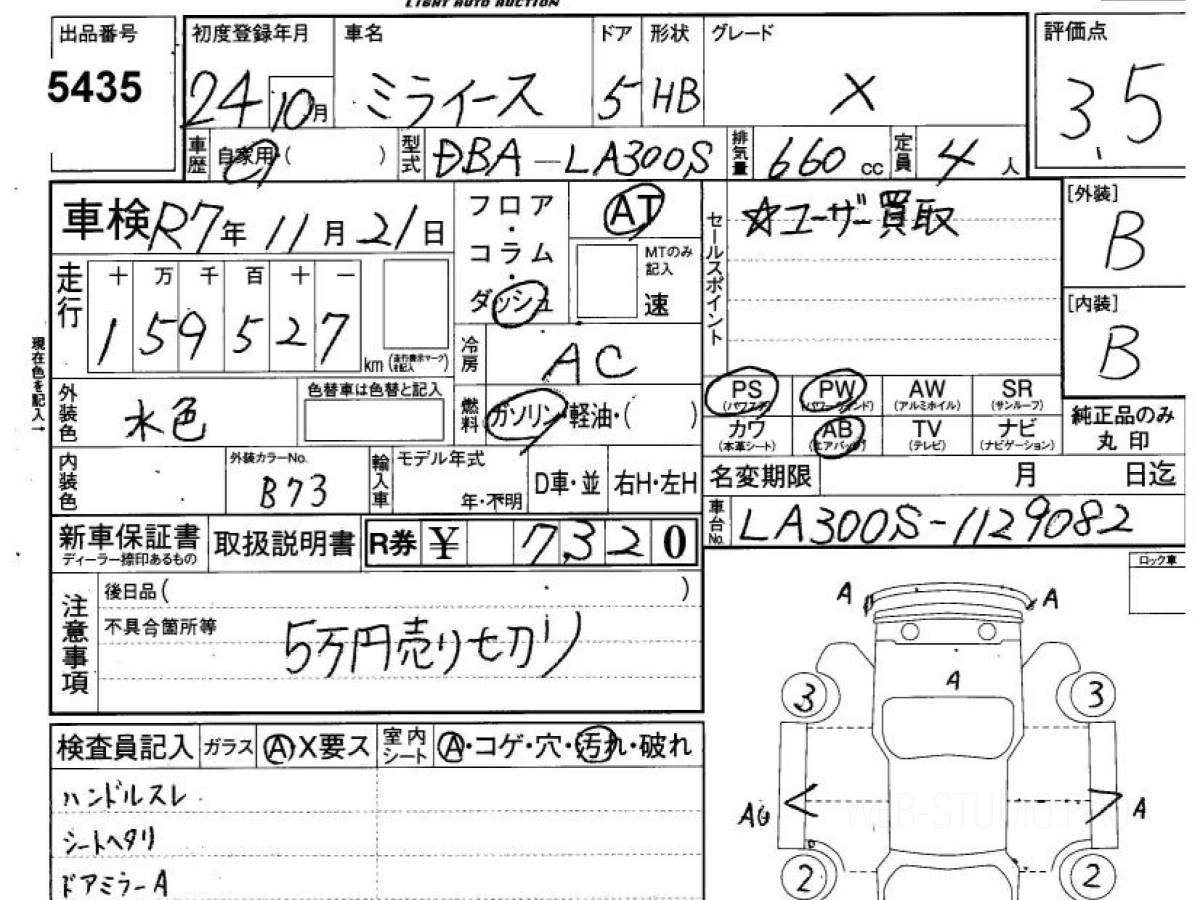 LIGHT AUTO AUCTION
出品番号 初度登録年月 車名 ドア 形状 グレード 評価点
5435 24 10月 ミライース 5 HB X 3.5
車歴 自家用・( ) 型式 DBA-LA300S 排気量 660 cc 定員 4 人
車検 R7年 11月 21日
フロア・コラム・ダッシュ AT
MTのみ記入 速
セールスポイント ☆ユーザー買取
[外装] B
[内装] B
走行 十 万 千 百 十 一
1 5 9 5 2 7 km (走行表示マークを記入)
現在色を記入→
冷房 AC
外装色 水色 色替車は色替と記入
燃料 ガソリン・軽油・( )
PS (パワステ) PW (パワーウィンド) AW (アルミホイル) SR (サンルーフ)
カワ (本革シート) AB (エアバッグ) TV (テレビ) ナビ (ナビゲーション)
純正品のみ丸印
内装色 外装カラーNo. B73 輸入車 モデル年式 年・不明 D車・並 右H・左H
名変期限 月 日迄
車台No. LA300S-1129082
新車保証書 ディーラー捺印あるもの 取扱説明書 R券 ¥ 7320
注意事項 後日品( )
不具合箇所等
5万円売り七刀り
ロック車
A A
A
3 3
検査員記入 ガラス A X要ス 室内シート A・コゲ・穴・汚れ・破れ
ハンドルスレ
シートヘタリ
ドアミラーA
AG A
2 2
WEB-STUDIO.PRO